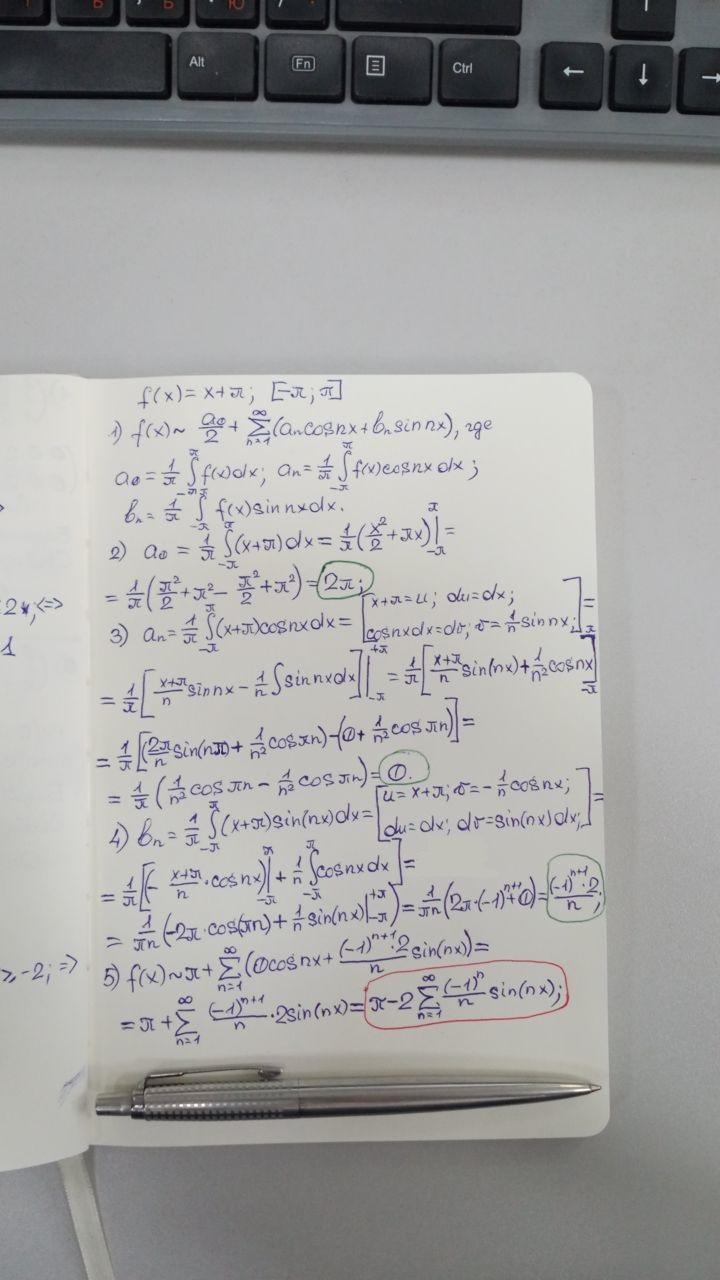 Alt
Fn
Ctrl
← ↓ →
f(x) = x+π; [-π; π]
1) f(x) ~ a₀/2 + ∑_{n=1}^{∞} (aₙcosnx + bₙsin nx), где
a₀ = 1/π ∫_{-π}^{π} f(x)dx; aₙ = 1/π ∫_{-π}^{π} f(x)cosnx dx;
bₙ = 1/π ∫_{-π}^{π} f(x)sin nx dx.
2) a₀ = 1/π ∫_{-π}^{π} (x+π)dx = 1/π (x²/2 + πx)|_{-π}^{π} =
= 1/π (π²/2 + π² - π²/2 + π²) = 2π;
3) aₙ = 1/π ∫_{-π}^{π} (x+π)cosnx dx = [x+π = u; du = dx; cosnx dx = dv; v = 1/n sin nx;] =
= 1/π [(x+π)/n sin nx - 1/n ∫ sin nx dx]|_{-π}^{+π} = 1/π [(x+π)/n sin(nx) + 1/n² cos nx]_{-π}^{π} =
= 1/π [(2π/n sin(nπ) + 1/n² cos πn) - (0 + 1/n² cos πn)] =
= 1/π (1/n² cos πn - 1/n² cos πn) = 0.
4) bₙ = 1/π ∫_{-π}^{π} (x+π)sin(nx)dx = [u = x+π; v = -1/n cosnx; du = dx; dv = sin(nx)dx;] =
= 1/π [(- (x+π)/n · cosnx)|_{-π}^{π} + 1/n ∫_{-π}^{π} cosnx dx] =
= 1/πn (-2π · cos(πn) + 1/n sin(nx)|_{-π}^{+π}) = 1/πn (2π · (-1)^{n+1} + 0) = (-1)^{n+1} · 2/n;
5) f(x) ~ π + ∑_{n=1}^{∞} (0cosnx + (-1)^{n+1} · 2/n sin(nx)) =
= π + ∑_{n=1}^{∞} (-1)^{n+1}/n · 2sin(nx) = π - 2 ∑_{n=1}^{∞} (-1)^n/n sin(nx);
1
-2; ⇒